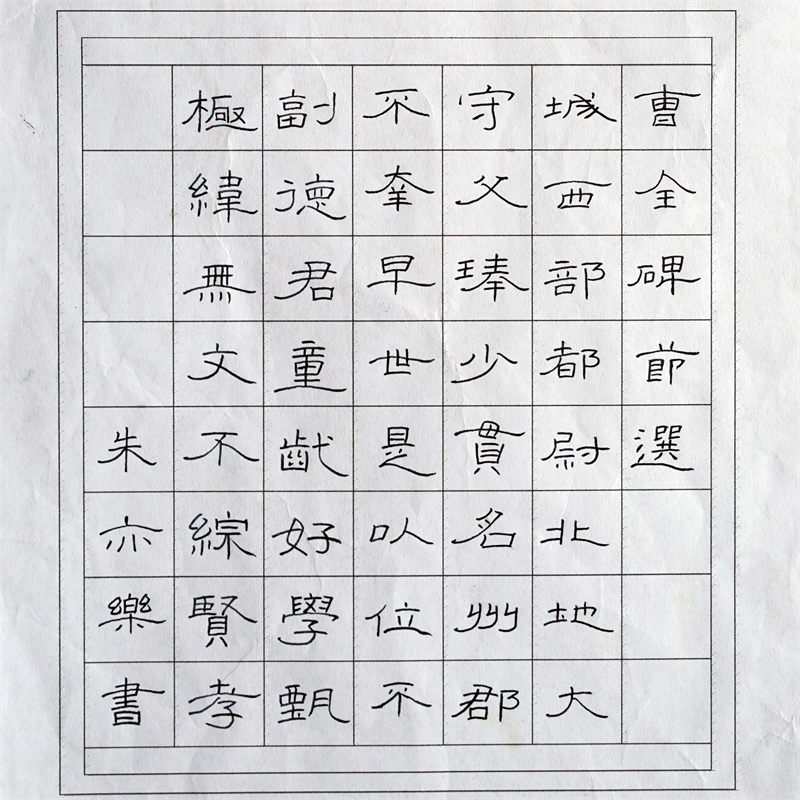 曹全碑節選
城西部都尉北地大
守父琫少貫名州郡
不幸早世是以位不
副德君童齔好學甄
極緯無文不綜賢孝
朱亦樂書